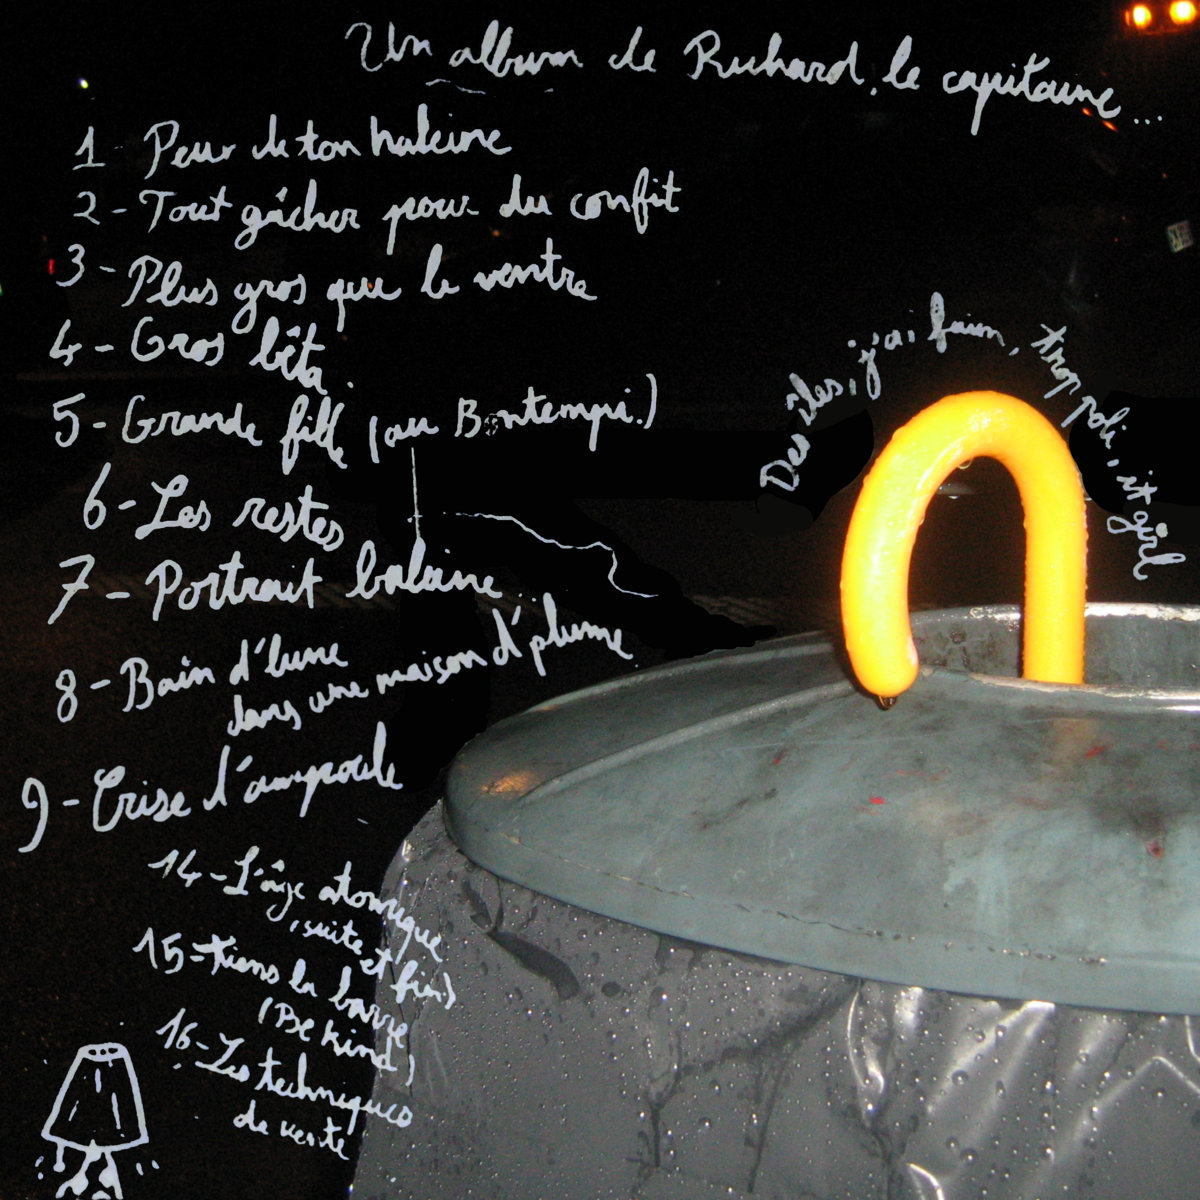 Un album de Richard, le capitaine...
1 - Peur de ton haleine
2 - Tout gâcher pour du confit
3 - Plus gros que le ventre
4 - Gros bêta.
5 - Grande fille (au Bontempi.)
6 - Les restes
7 - Portrait baleine...
8 - Bain d'lune
dans une maison d'plume
9 - Crise d'ampoule
Des îles, j'ai faim, trop poli, it girl
14 - L'âge atomique
(suite et fin)
15 - Tiens la barre
(Be kind)
16 - Les techniques
de vente